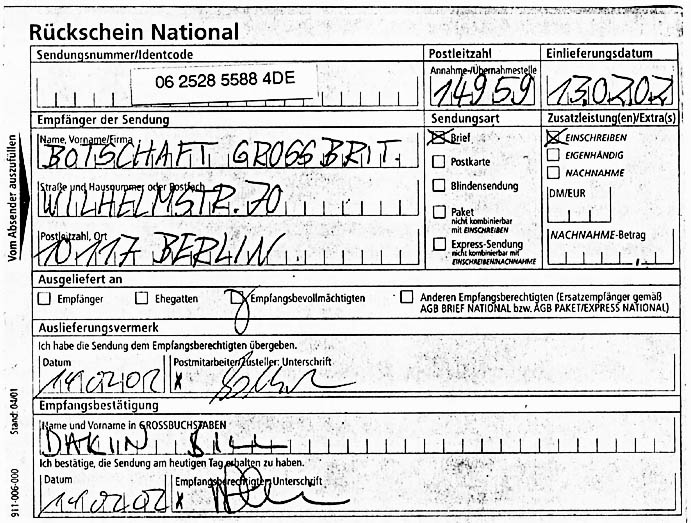 Rückschein National
Sendungsnummer/Identcode
06 2528 5588 4DE
Postleitzahl
Annahme-/Übernahmestelle
14959
Einlieferungsdatum
13.02.02
Empfänger der Sendung
Name, Vorname/Firma
BOTSCHAFT GROSSBRIT.
Straße und Hausnummer oder Postfach
WILHELMSTR. 70
Postleitzahl, Ort
10117 BERLIN
Sendungsart
Brief
Postkarte
Blindensendung
Paket
nicht kombinierbar
mit EINSCHREIBEN
Express-Sendung
nicht kombinierbar mit
EINSCHREIBEN/NACHNAHME
Zusatzleistung(en)/Extra(s)
EINSCHREIBEN
EIGENHÄNDIG
NACHNAHME
DM/EUR
NACHNAHME-Betrag
Vom Absender auszufüllen
Ausgeliefert an
Empfänger
Ehegatten
Empfangsbevollmächtigten
Anderen Empfangsberechtigten (Ersatzempfänger gemäß
AGB BRIEF NATIONAL bzw. AGB PAKET/EXPRESS NATIONAL)
Auslieferungsvermerk
Ich habe die Sendung dem Empfangsberechtigten übergeben.
Datum
14.02.02
Postmitarbeiter/Zusteller: Unterschrift
X
Empfangsbestätigung
Name und Vorname in GROSSBUCHSTABEN
DAKIN BILL
Ich bestätige, die Sendung am heutigen Tag erhalten zu haben.
Datum
14.02.02
Empfangsberechtigter: Unterschrift
X
911-006-000 Stand: 04/01